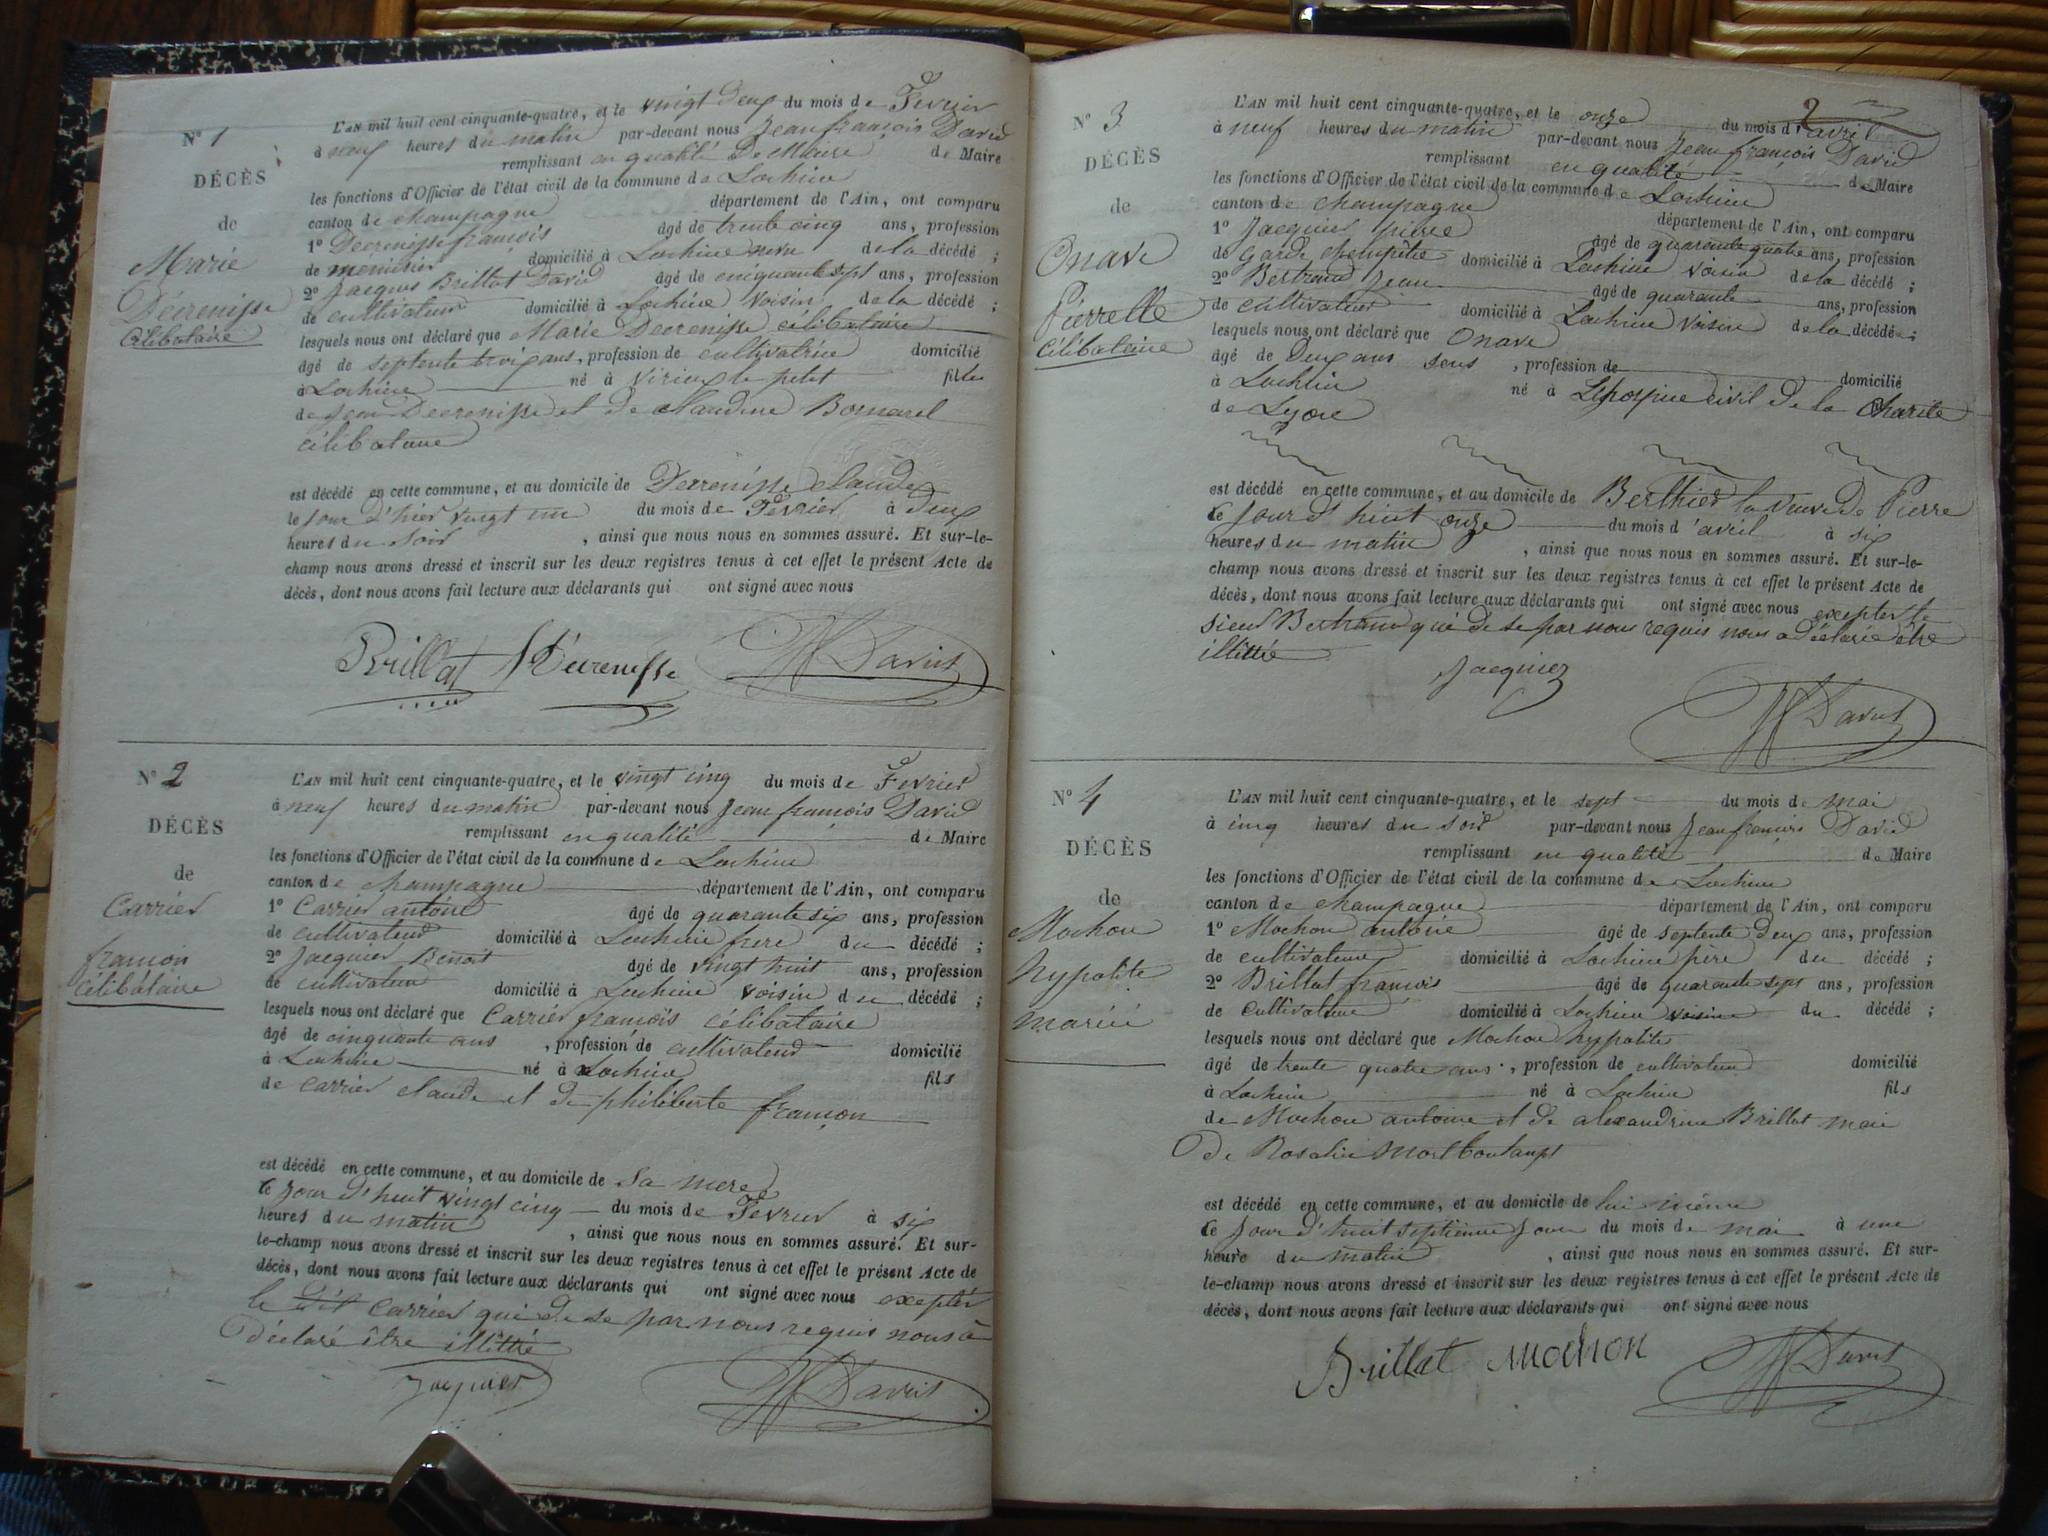 N° 1
DÉCÈS
de
Marie
Décrenisse
Célibataire
L'AN mil huit cent cinquante-quatre, et le vingt deux du mois de Fevrier
à neuf heures du matin par-devant nous Jean françois David
remplissant en qualité De Maire de Maire
les fonctions d'Officier de l'état civil de la commune de Lochieu
canton de champagne département de l'Ain, ont comparu
1° Decrenisse françois âgé de trente cinq ans, profession
de menuisier domicilié à Lochieu neveu de la décédé ;
2° Jacques Brillat David âgé de cinquante sept ans, profession
de cultivateur domicilié à Lochieu Voisin de la décédé ;
lesquels nous ont déclaré que Marie Decrenisse célibataire
âgé de septente trois ans, profession de cultivatrice domicilié
à Lochieu né à Virieux le petit fille
de Jean Decrenisse et de claudine Bornarel
célibataire
est décédé en cette commune, et au domicile de Decrenisse claude
le jour d'hier vingt un du mois de Fevrier à deux
heures du soir , ainsi que nous nous en sommes assuré. Et sur-le-
champ nous avons dressé et inscrit sur les deux registres tenus à cet effet le présent Acte de
décès, dont nous avons fait lecture aux déclarants qui ont signé avec nous
Brillat Décrenisse David
N° 2
DÉCÈS
de
Carrier
françois
célibataire
L'AN mil huit cent cinquante-quatre, et le vingt cinq du mois de Fevrier
à neuf heures du matin par-devant nous Jean françois David
remplissant en qualité de Maire
les fonctions d'Officier de l'état civil de la commune de Lochieu
canton de champagne département de l'Ain, ont comparu
1° Carrier antoine âgé de quarante six ans, profession
de cultivateur domicilié à Lochieu frere du décédé ;
2° Jacquier Benoit âgé de vingt huit ans, profession
de cultivateur domicilié à Lochieu voisin du décédé ;
lesquels nous ont déclaré que Carrier françois célibataire
âgé de cinquante ans , profession de cultivateur domicilié
à Lochieu né à Lochieu fils
de carrier claude et de philiberte françon
est décédé en cette commune, et au domicile de sa mere
ce jour d'huit vingt cinq du mois de Fevrier à six
heures du matin , ainsi que nous nous en sommes assuré. Et sur-
le-champ nous avons dressé et inscrit sur les deux registres tenus à cet effet le présent Acte de
décès, dont nous avons fait lecture aux déclarants qui ont signé avec nous excepter
le dit Carrier qui de se par nous requis nous a
Déclaré être illittré
Jacquier David
2
N° 3
DÉCÈS
de
Onave
Pierrette
célibataire
L'AN mil huit cent cinquante-quatre, et le onze du mois d'avril
à neuf heures du matin par-devant nous Jean françois David
remplissant en qualité de Maire
les fonctions d'Officier de l'état civil de la commune de Lochieu
canton de champagne département de l'Ain, ont comparu
1° Jacquier pierre âgé de quarente quatre ans, profession
de Garde champêtre domicilié à Lochieu voisin de la décédé ;
2° Bertrand Jean âgé de quarante ans, profession
de cultivateur domicilié à Lochieu voisin de la décédé ;
lesquels nous ont déclaré que Onave
âgé de Deux ans sens , profession de domicilié
à Lochieu né à L'hospice civil de la Charité
de Lyon
est décédé en cette commune, et au domicile de Berthier la veuve de Pierre
ce jour d'huit onze du mois d'avril à six
heures du matin , ainsi que nous nous en sommes assuré. Et sur-le-
champ nous avons dressé et inscrit sur les deux registres tenus à cet effet le présent Acte de
décès, dont nous avons fait lecture aux déclarants qui ont signé avec nous excepter le
sieur Bertrand qui de se par nous requis nous a déclarée être
illittré
Jacquier
David
N° 4
DÉCÈS
de
Mochon
hypolite
mariée
L'AN mil huit cent cinquante-quatre, et le sept du mois de mai
à cinq heures du soir par-devant nous Jean françois David
remplissant en qualité de Maire
les fonctions d'Officier de l'état civil de la commune de Lochieu
canton de champagne département de l'Ain, ont comparu
1° Mochon antoine âgé de septente deux ans, profession
de cultivateur domicilié à Lochieu père du décédé ;
2° Brillat françois âgé de quarente sept ans, profession
de cultivateur domicilié à Lochieu voisin du décédé ;
lesquels nous ont déclaré que Mochon hypolite
âgé de trente quatre ans , profession de cultivateur domicilié
à Lochieu né à Lochieu fils
de Mochon antoine et de alexandrine Brillat mari
de Rosalie
est décédé en cette commune, et au domicile de lui même
ce jour d'huit septieme jour du mois de mai à une
heure du matin , ainsi que nous nous en sommes assuré. Et sur-
le-champ nous avons dressé et inscrit sur les deux registres tenus à cet effet le présent Acte de
décès, dont nous avons fait lecture aux déclarants qui ont signé avec nous
Brillat Mochon David